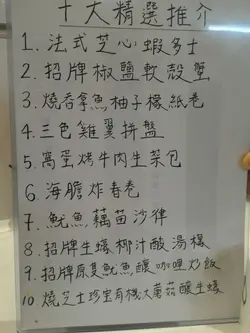 十大精選推介
1. 法式芝心蝦多士
2. 招牌椒鹽軟殼蟹
3. 燒吞拿魚柚子檬紙卷
4. 三色雞翼拼盤
5. 窩蛋烤牛肉生菜包
6. 海膽炸春卷
7. 魷魚藕苗沙律
8. 招牌生蠔椰汁酸湯檬
9. 招牌原隻魷魚釀咖喱炒飯
10 燒芝士珍宝有機大蘑菇釀生蠔